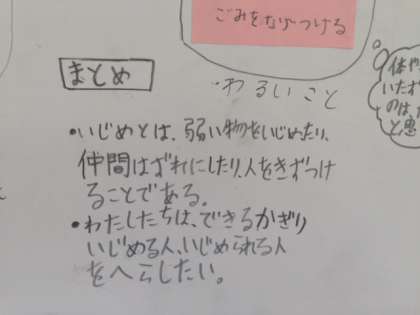 ごみをなげつける
・わるいこと
まとめ
・いじめとは、弱い物をいじめたり、
仲間はずれにしたり、人をきずつけ
ることである。
・わたしたちは、できるかぎり
いじめる人、いじめられる人
をへらしたい。